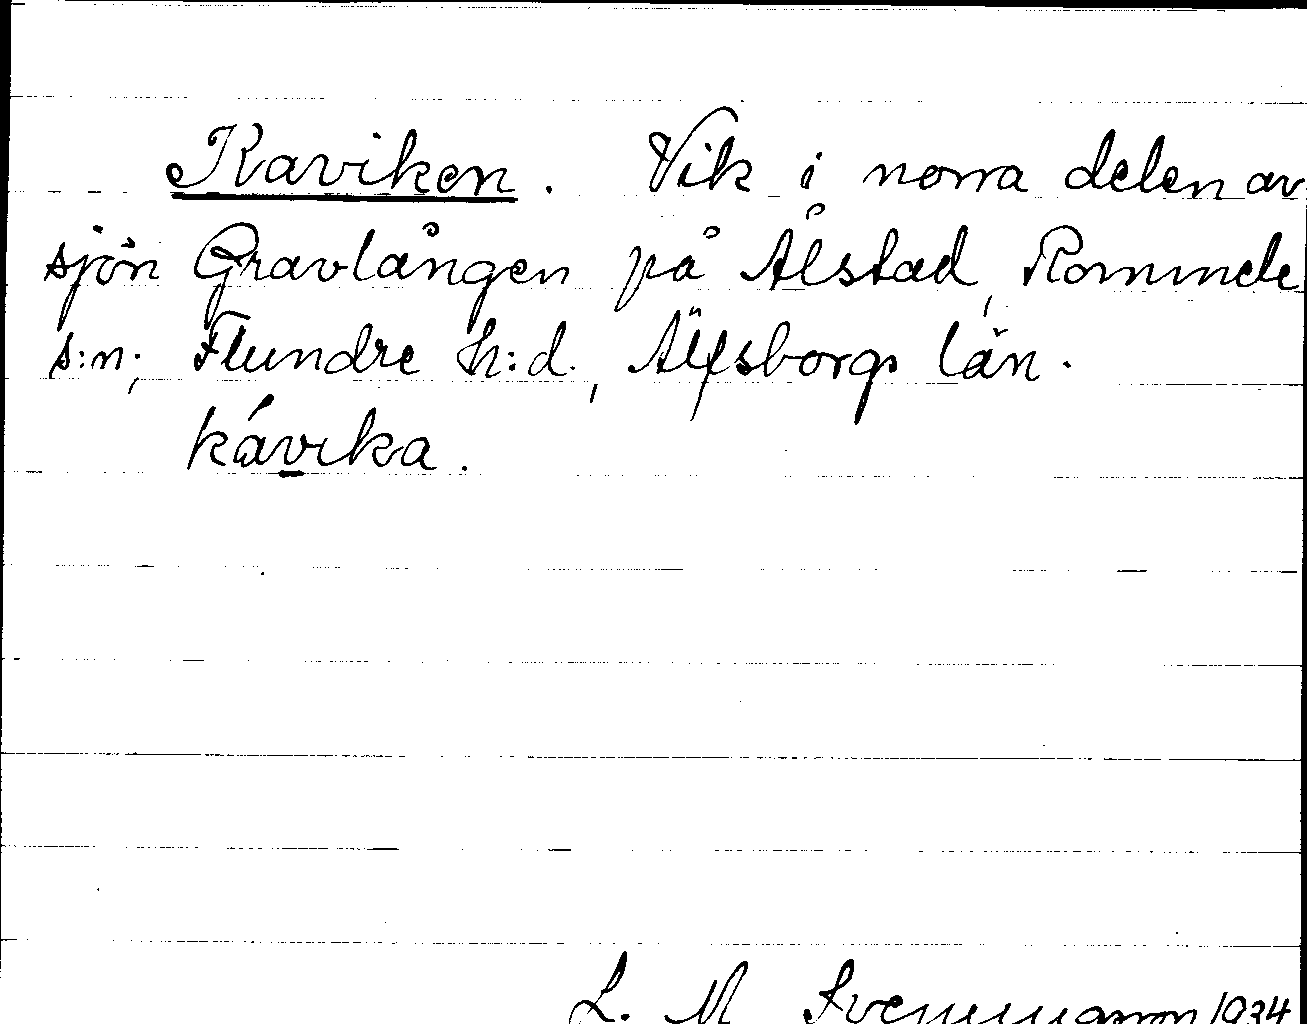 Kaviken. Vik i norra delen av
sjön Gravlången på Ålstad, Rommele
s:n; Flundre h:d., Älfsborgs län.
kávika.
L. M Svenungsson 1934